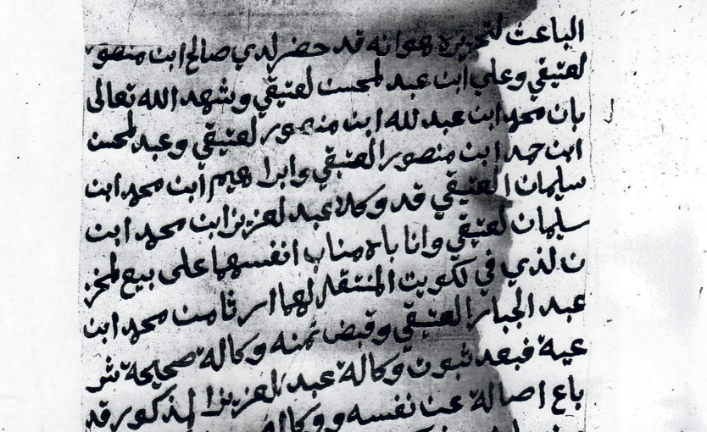 الباعث لتحريره هو انه قد حضر لدي صالح ابن منصور
لعتيقي وعلي ابن عبد لمحسن لعتيقي وشهد الله تعالى
بان محمد ابن عبد لله ابن منصور لعتيقي وعبد لمحسن
ابن حمد ابن منصور العتيقي وابراهيم ابن محمد ابن
سليمان العتيقي قد وكلا عبد لعزيز ابن محمد ابن
سليمان لعتيقي وانا باه مناب انفسهما على بيع لمخز
ن لذي في لكويت المنتقل لهما ارثا من محمد ابن
عبد الجبار العتيقي وقبض ثمنه وكالة صحيحة شر
عية فبعد ثبوت وكالة عبد لعزيز المذكور قد
باع اصالة عن نفسه ووكالة